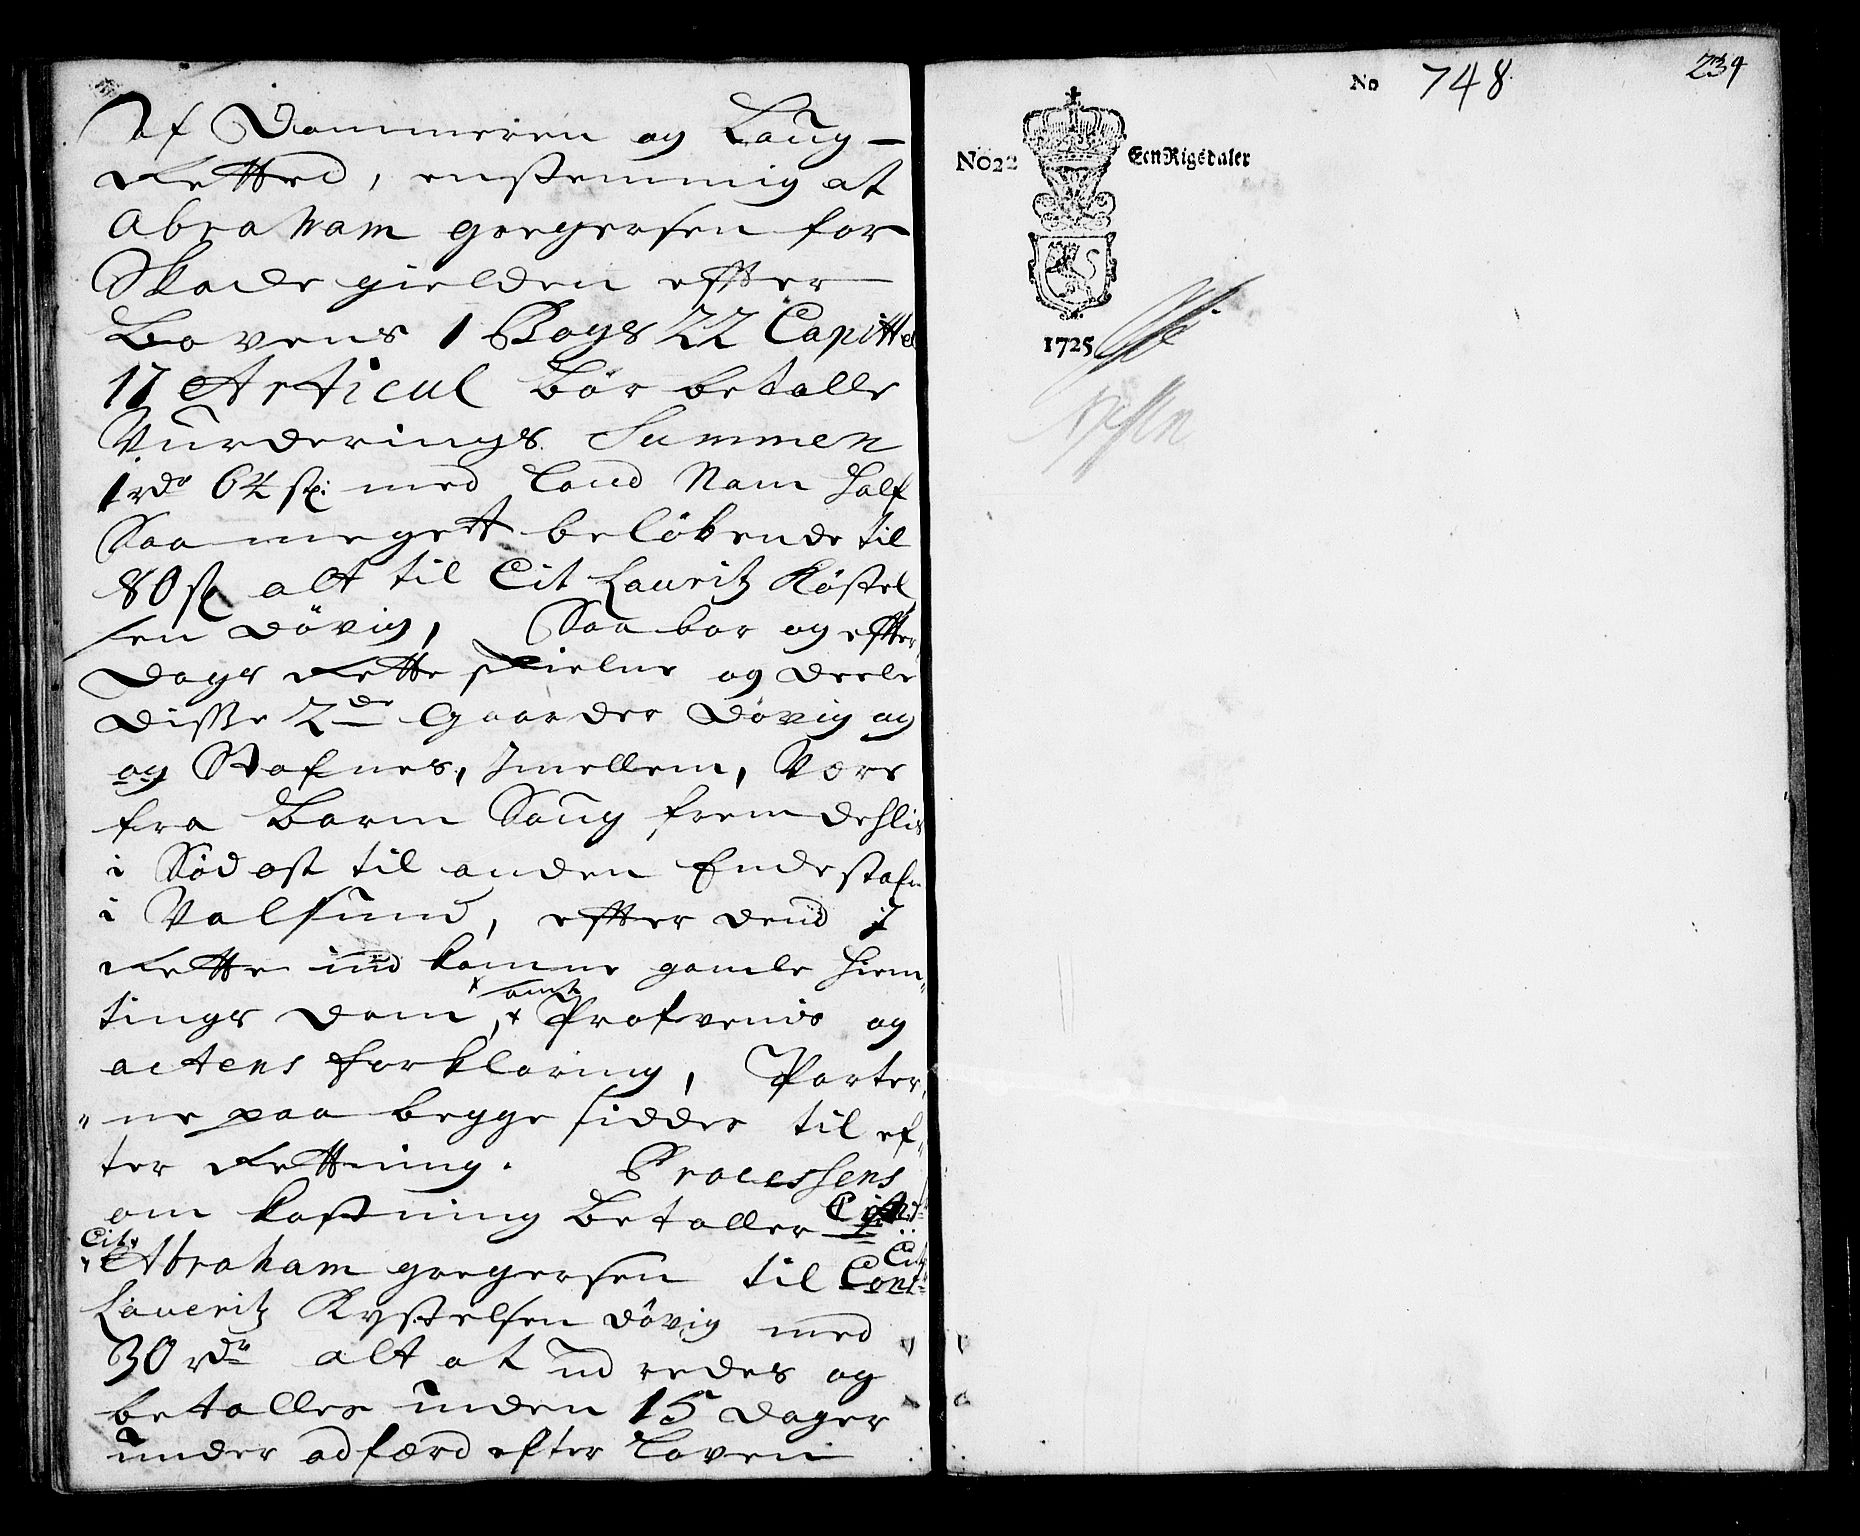 Af Dommeren og Laug-
Retted, enstemmig at
Abraham gregersen for
Skade gielden efter
Lovens 1 Bogs 22 Capittel
17 Articul bör betalle
Vurderings Summen
1 rdr 64 sk: med Land Nam half
Saa megett belöbende til
80 sk alt til Cit LauritzKöstel
sen Dövig, Saa bör og efter
Dags Rette skielne og deele
disse 2de Gaarder Dövig og
og Stafnes, Imellem, Være
fra Barm Saug frem dehlis
i Södost til anden Endestafn
i Valsund, efter dend I
Rette ind komne gamle Hiem„
tings dom, samt Profvenis og
actens forklaring, Parter„
„ne paa begge sidder til ef„
ter Rettning. Processens
om kostning betaller
Cit: Abraham gregersen til Cit
Lauritz Kystelsen Dövig med
30 rdr alt at ud redes og
betalles inden 15 dager
under adfærd efter Loven
No 748
239
No 22 Een Rigsdaler
1725